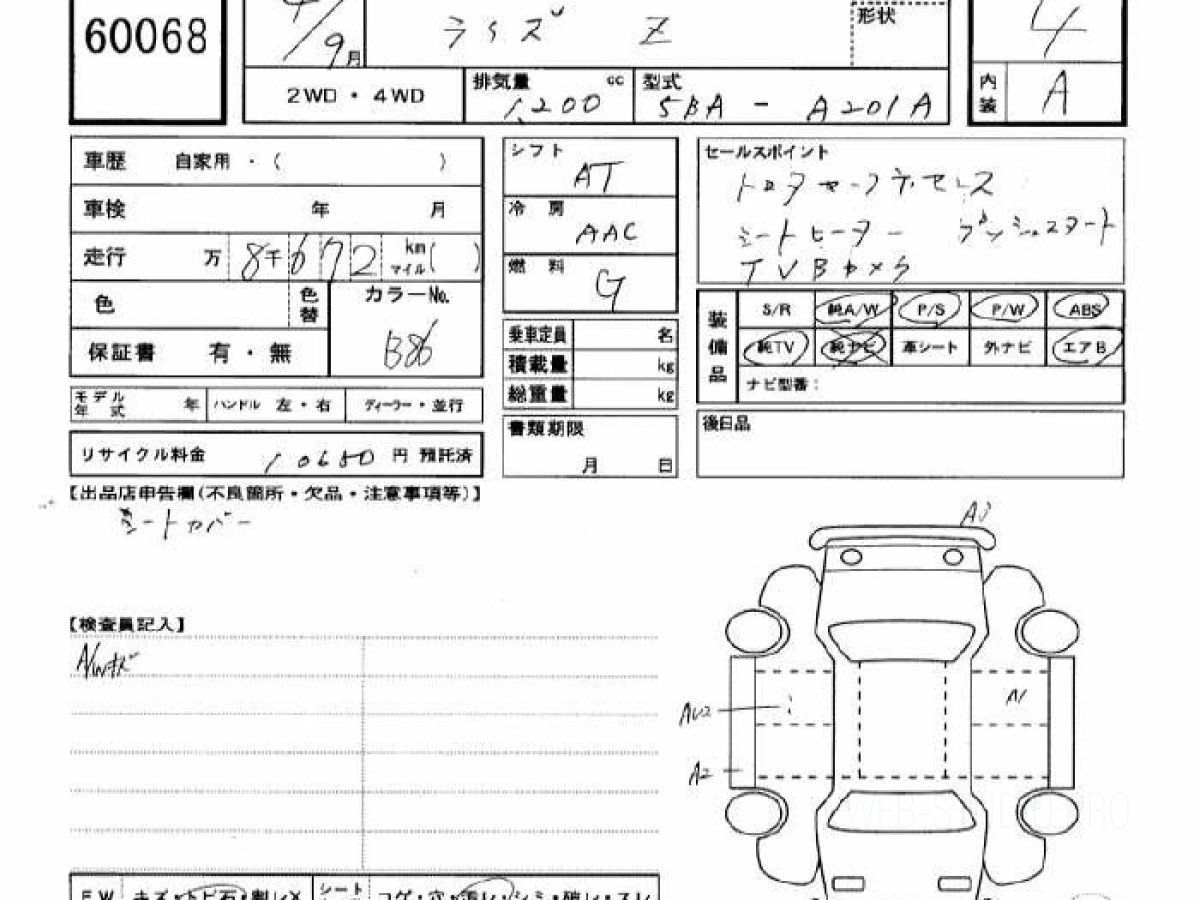 60068
9月
ライズ Z
形状
4
2WD・4WD
排気量 cc
1,200
型式
5BA - A201A
内装
A
車歴 自家用・( )
シフト
AT
セールスポイント
トヨタセーフティセンス
シートヒーター プッシュスタート
TVBカメラ
車検 年 月
冷房
AAC
走行 万 8千672 km マイル( )
燃料
G
色
色替
カラーNo.
B86
保証書 有・無
乗車定員 名
積載量 kg
総重量 kg
装備品
S/R 純A/W P/S P/W ABS
純TV 純ナビ 革シート 外ナビ エアB
ナビ型番:
モデル年式 年
ハンドル 左・右
ディーラー・並行
書類期限
月 日
後日品
リサイクル料金 10650 円 預託済
【出品店申告欄(不良箇所・欠品・注意事項等)】
シートカバー
A3
【検査員記入】
A/Wキズ
A1
AU2
A2
WEB-S
RO
FW キズ・トビ石・割レX
シート コゲ・穴・汚レ・シミ・破レ・スレ